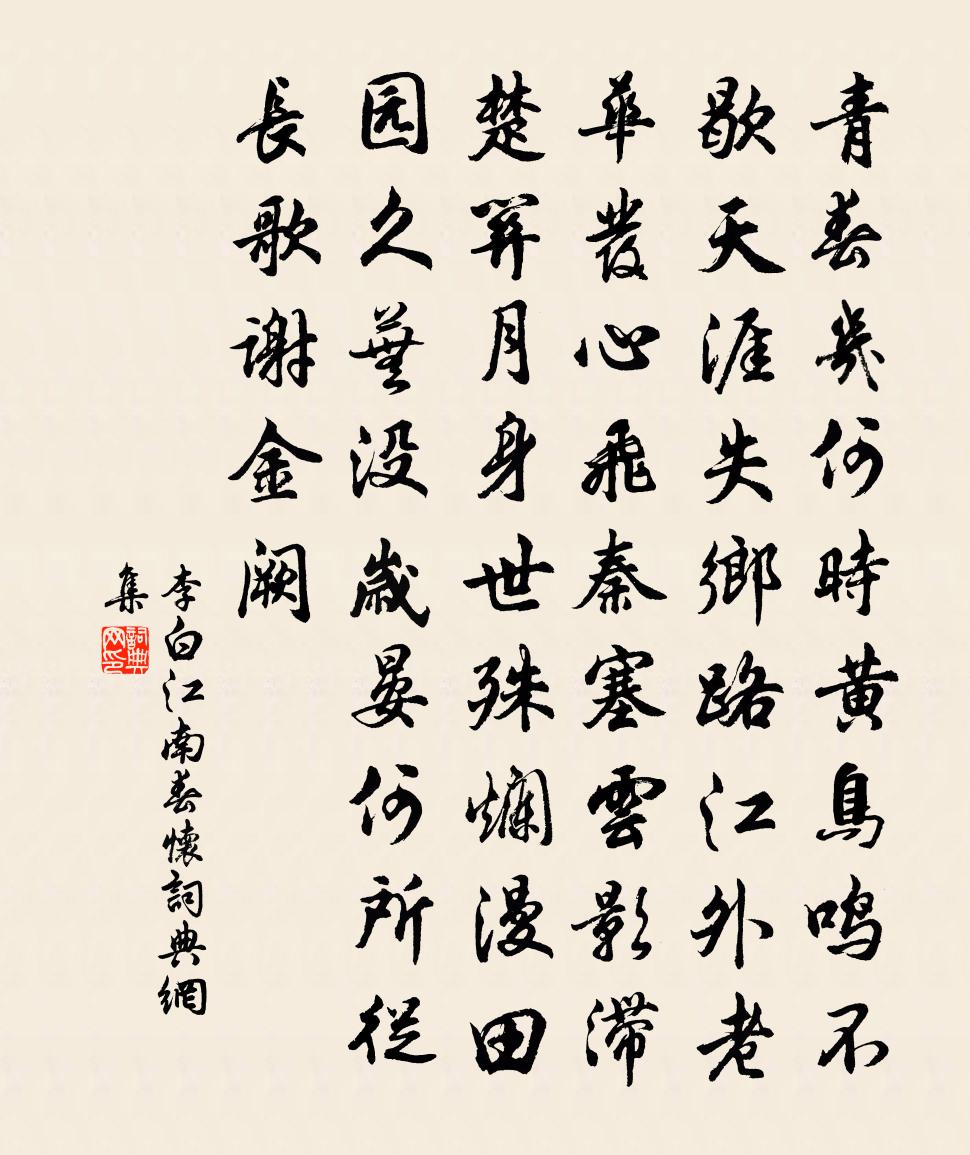 青春幾何時黄鳥鳴不
歇天涯失鄉路江外老
華發心飛秦塞雲影滯
楚關月身世殊爛漫田
园久蕪没歳晏何所従
長歌谢金闕
李白江南春懷詞典網
集
詞典网印